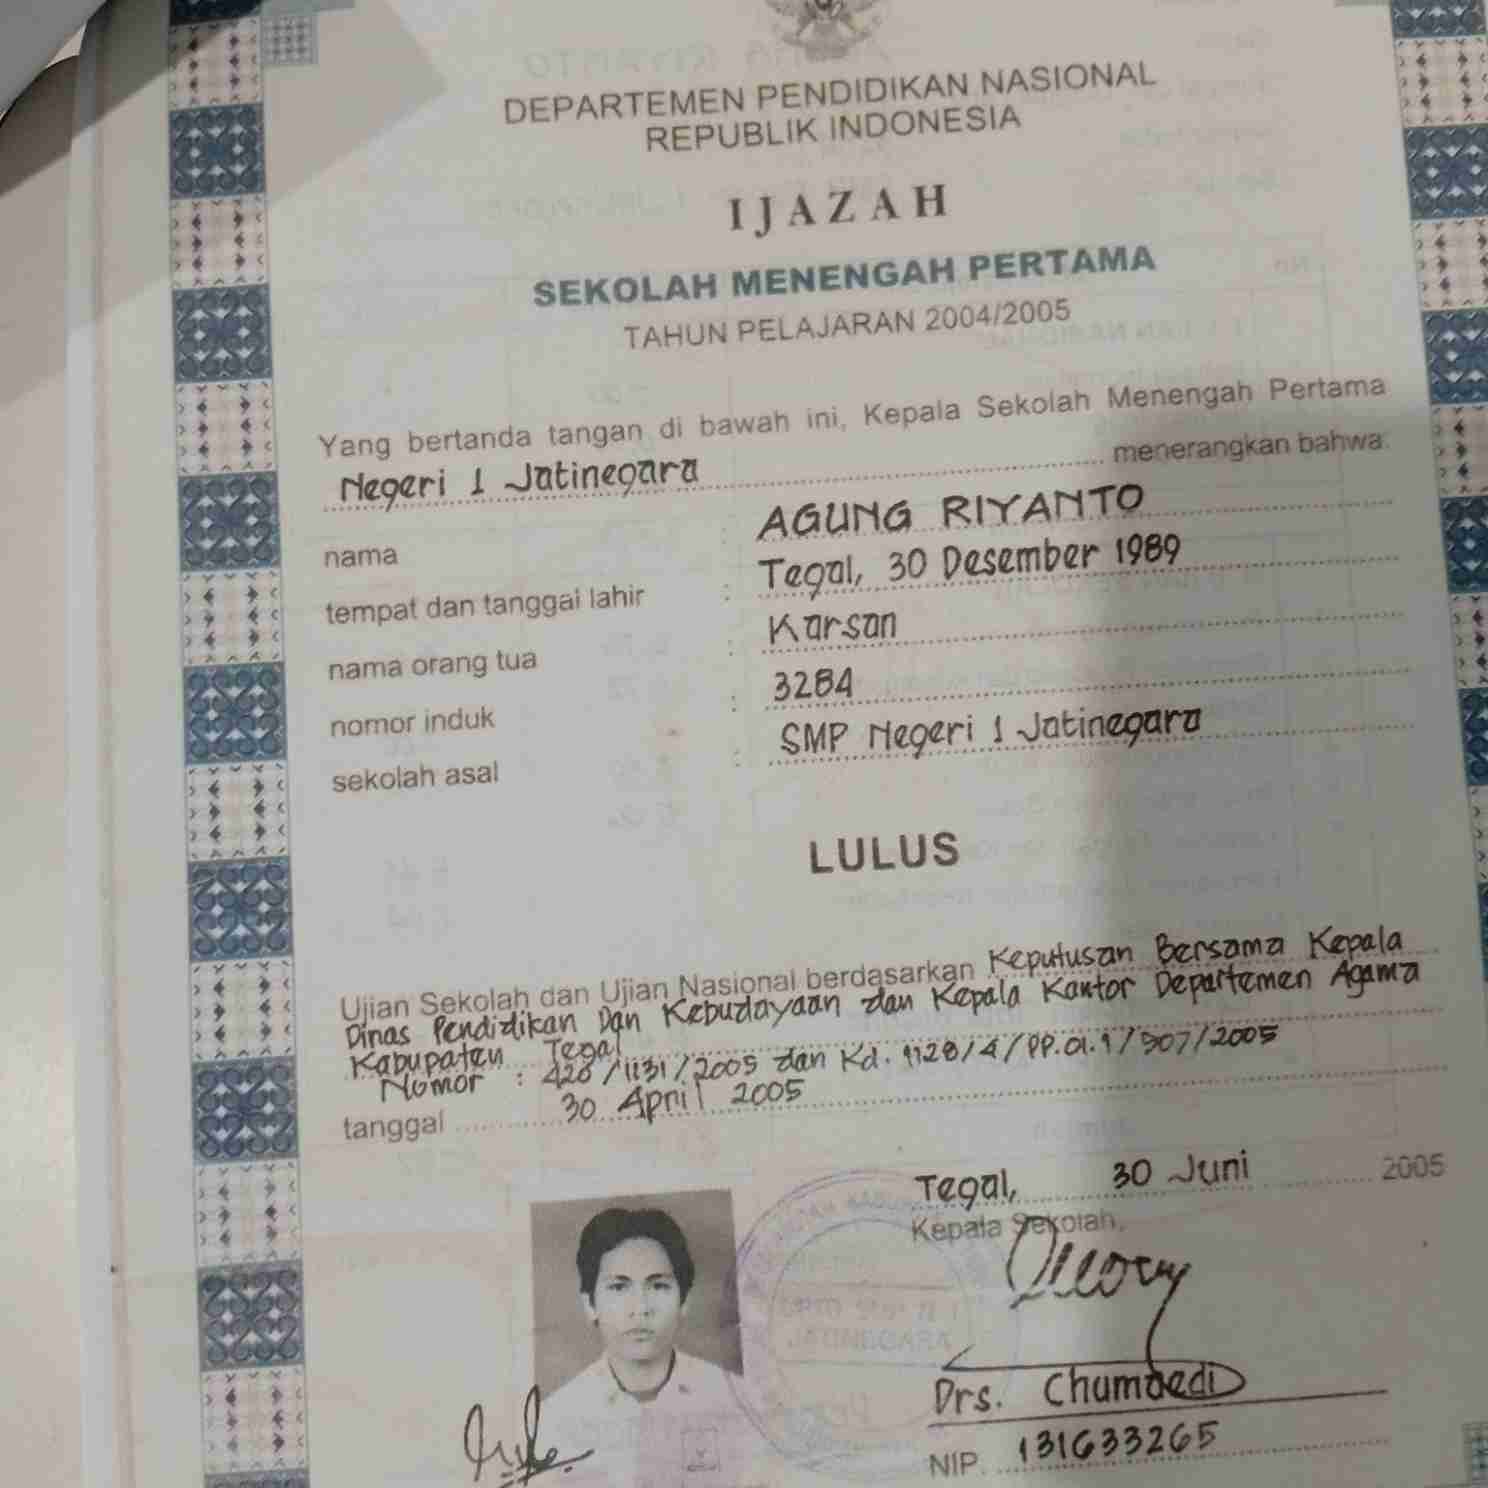 DEPARTEMEN PENDIDIKAN NASIONAL
REPUBLIK INDONESIA
IJAZAH
SEKOLAH MENENGAH PERTAMA
TAHUN PELAJARAN 2004/2005
Yang bertanda tangan di bawah ini, Kepala Sekolah Menengah Pertama
Negeri 1 Jatinegara menerangkan bahwa:
nama : AGUNG RIYANTO
tempat dan tanggal lahir : Tegal, 30 Desember 1989
nama orang tua : Karsan
nomor induk : 3284
sekolah asal : SMP Negeri 1 Jatinegara
LULUS
Ujian Sekolah dan Ujian Nasional berdasarkan Keputusan Bersama Kepala
Dinas Pendidikan Dan Kebudayaan dan Kepala Kantor Departemen Agama
Kabupaten Tegal
Nomor : 420/1131/2005 dan Kd. 1128/4/PP.01.1/907/2005
tanggal 30 April 2005
Tegal, 30 Juni 2005
Kepala Sekolah,
Drs. Chumaedi
NIP. 131633265